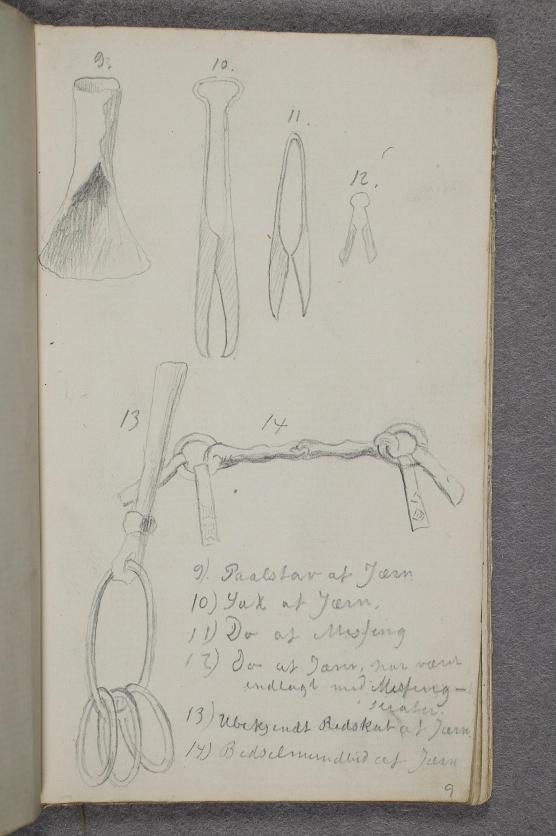 9.
10.
11.
12.
13
14
9) Paalstav af Jærn
10) Sax af Jærn,
11) Do af Messing
12) Do af Jærn, har været
indlagt med Messing-
13) Ubekjendt Redskab af Jærn
14) Bedselmundbid af Jærn
9